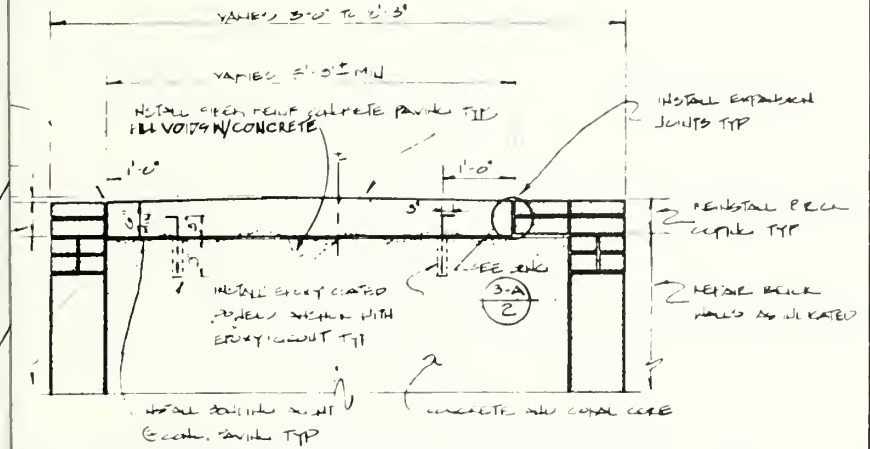 VARIES 3'-0" TO
VARIES MIN
INSTALL REINF CONCRETE PAVING TYP
FILL VOIDS W/CONCRETE
INSTALL EXPANSION
JOINTS TYP
1'-0"
1'-0"
3"
REINSTALL BRICK
COPING TYP
SEE DWG
3-A
2
INSTALL EPOXY COATED
DOWELS ANCHOR WITH
EPOXY GROUT TYP
REPAIR BRICK
WALLS AS INDICATED
INSTALL BONDING AGENT
@ CONC. PAVING TYP
CONCRETE AND CORAL CORE